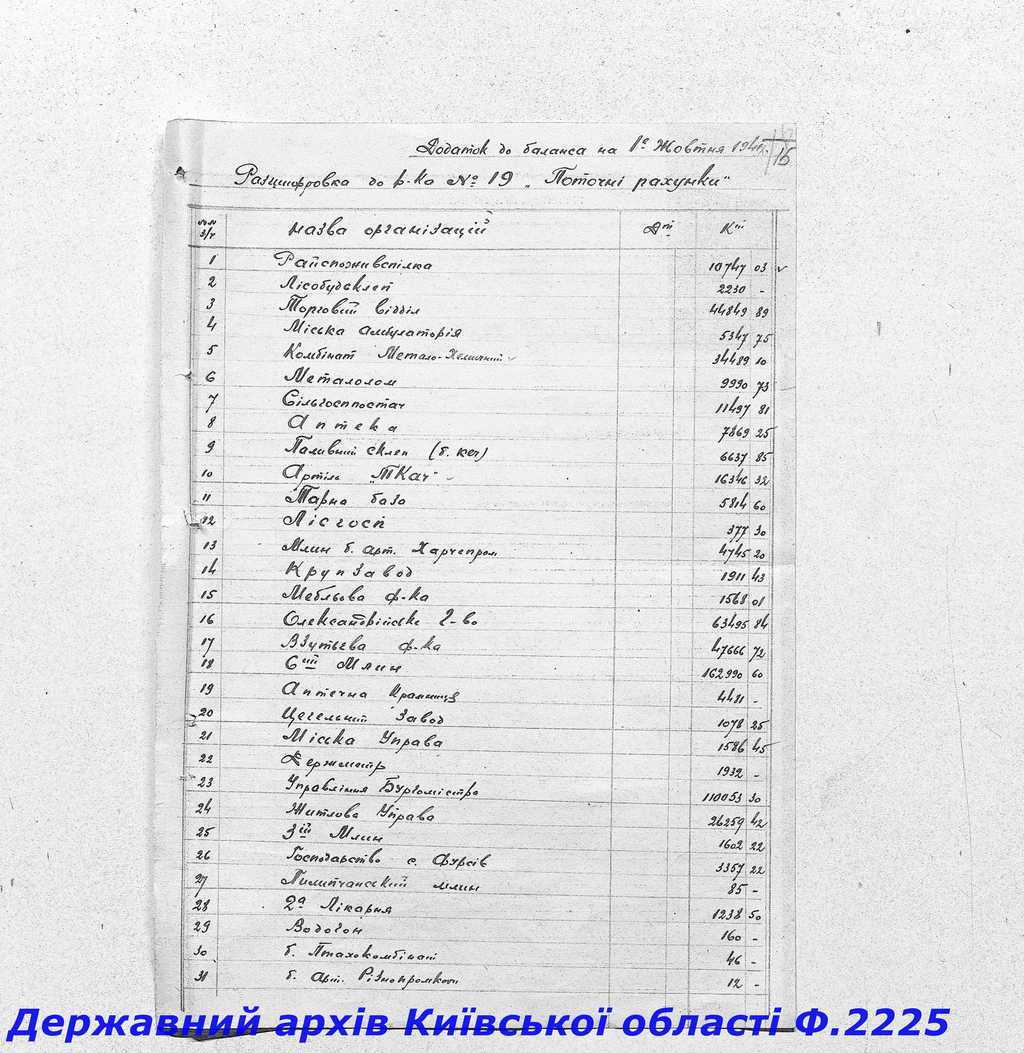 Додаток до баланса на 1е Жовтня 194
16
Разшифровка до р-ка № 19 „Поточні рахунки"
№№ з/ч назва організацій Дт Кт
1 Райспоживспілка 10747 03
2 Лісобудсклеп 2230 -
3 Торговий відділ 44849 89
4 Міська амбулаторія 5347 75
5 Комбінат Метало-Хемичний 34489 10
6 Металолом 9990 73
7 Сільгосппостач 11497 81
8 Аптека 7869 25
9 Паливний склеп (б. кеч) 6637 85
10 Артіль „ТКач" 16346 32
11 Тарна база 5814 60
12 Лісгосп 377 30
13 Млин б. арт. Харчепром 4745 20
14 Крупзавод 1911 43
15 Мебльова ф-ка 1568 01
16 Олександрійське г-во 63495 84
17 Взутьева ф-ка 47666 72
18 6ий Млин 162990 60
19 Аптечна Крамниця 4481 -
20 Цегельний Завод 1078 25
21 Міська Управа 1586 45
22 Держметр 1932 -
23 Управління Бургомістра 110053 30
24 Житлова Управа 26259 42
25 3ій Млин 1602 22
26 Господарство с. Фурсів 3357 22
27 Пилипчанський млин 85 -
28 2а Лікарня 1238 50
29 Водогон 160 -
30 б. Птахокомбінат 46 -
31 б. Арт. Різнопромкооп 12 -
Державний архів Київської області Ф.2225